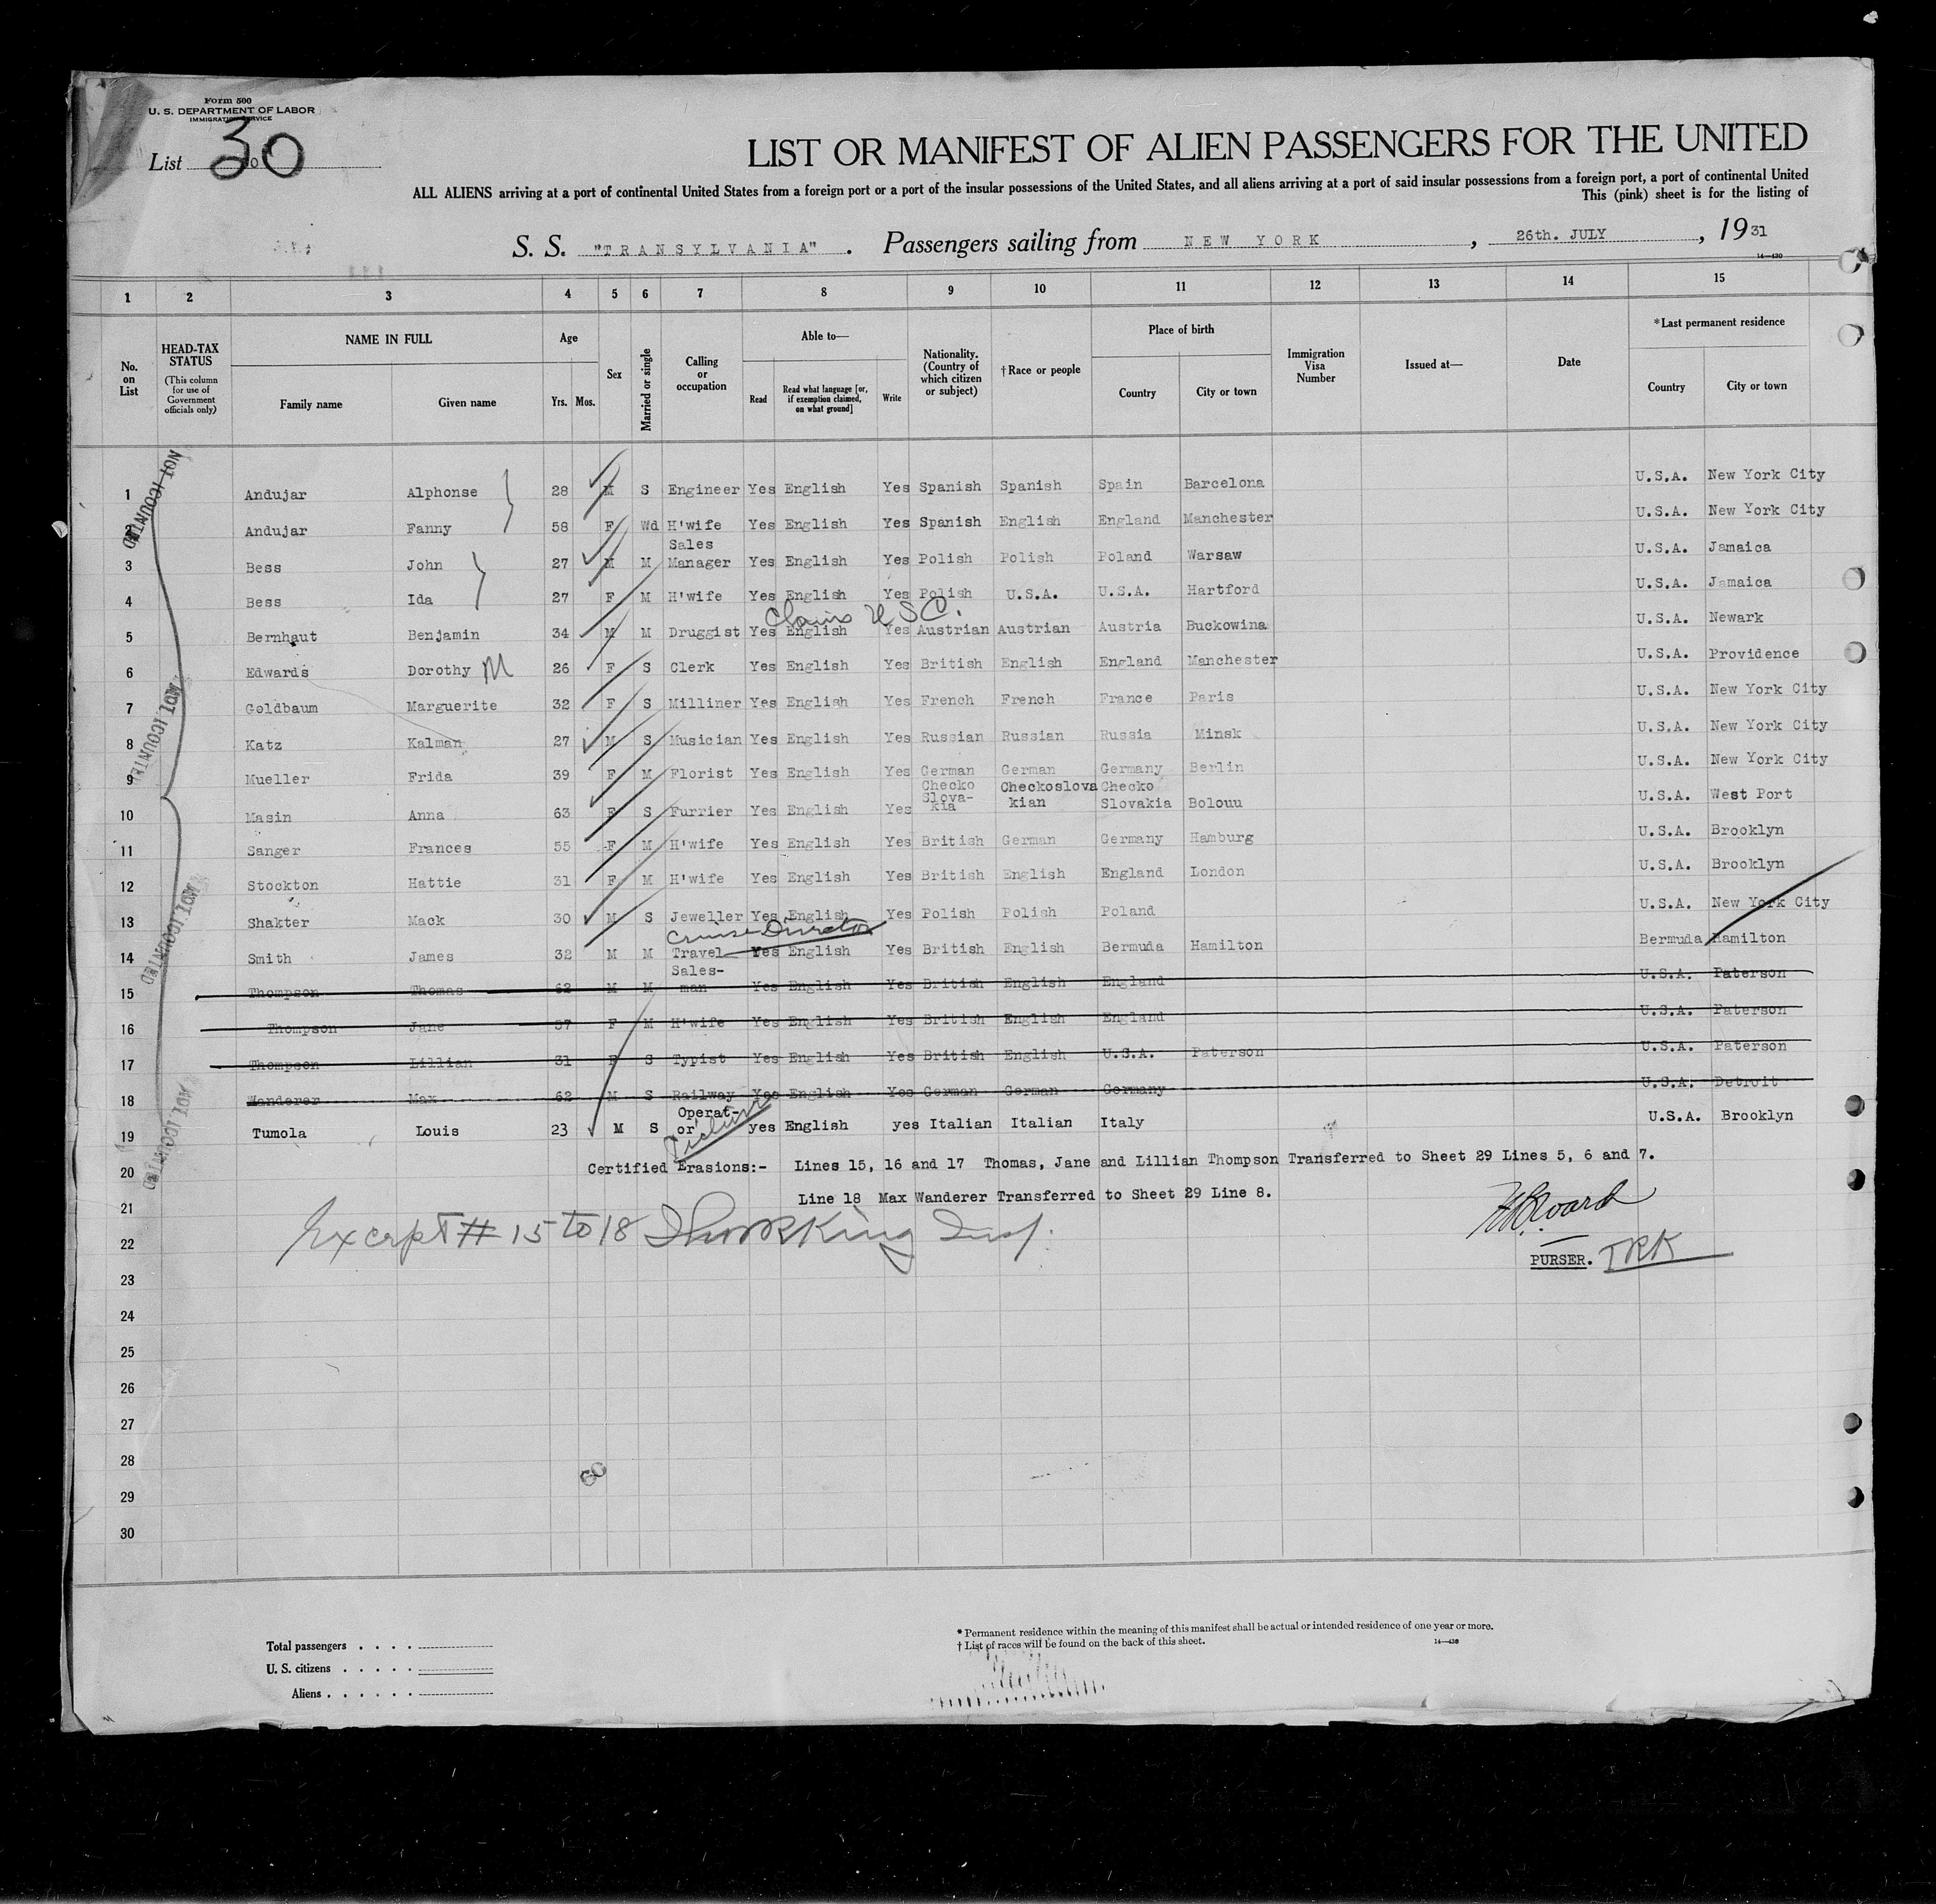 Form 500
U. S. DEPARTMENT OF LABOR
IMMIGRATION SERVICE
List 30
LIST OR MANIFEST OF ALIEN PASSENGERS FOR THE UNITED
ALL ALIENS arriving at a port of continental United States from a foreign port or a port of the insular possessions of the United States, and all aliens arriving at a port of said insular possessions from a foreign port, a port of continental United
This (pink) sheet is for the listing of
S. S. "TRANSYLVANIA". Passengers sailing from NEW YORK, 26th. JULY, 1931
14—430
1 2 3 4 5 6 7 8 9 10 11 12 13 14 15
No. on List
HEAD-TAX STATUS
(This column for use of Government officials only)
NAME IN FULL
Family name Given name
Age
Yrs. Mos.
Sex
Married or single
Calling or occupation
Able to—
Read
Read what language [or, if exemption claimed, on what ground]
Write
Nationality. (Country of which citizen or subject)
†Race or people
Place of birth
Country City or town
Immigration Visa Number
Issued at—
Date
*Last permanent residence
Country City or town
1 Andujar Alphonse 28 M S Engineer Yes English Yes Spanish Spanish Spain Barcelona U.S.A. New York City
2 Andujar Fanny 58 F Wd H'wife Yes English Yes Spanish English England Manchester U.S.A. New York City
3 Bess John 27 M M Sales Manager Yes English Yes Polish Polish Poland Warsaw U.S.A. Jamaica
4 Bess Ida 27 F M H'wife Yes English Yes Polish U.S.A. U.S.A. Hartford U.S.A. Jamaica
Claims USC.
5 Bernhaut Benjamin 34 M M Druggist Yes English Yes Austrian Austrian Austria Buckowina U.S.A. Newark
6 Edwards Dorothy M 26 F S Clerk Yes English Yes British English England Manchester U.S.A. Providence
7 Goldbaum Marguerite 32 F S Milliner Yes English Yes French French France Paris U.S.A. New York City
8 Katz Kalman 27 M S Musician Yes English Yes Russian Russian Russia Minsk U.S.A. New York City
9 Mueller Frida 39 F M Florist Yes English Yes German German Germany Berlin U.S.A. New York City
10 Masin Anna 63 F S Furrier Yes English Yes Checko Slova-kia Checkoslova kian Checko Slovakia Bolouu U.S.A. West Port
11 Sanger Frances 55 F M H'wife Yes English Yes British German Germany Hamburg U.S.A. Brooklyn
12 Stockton Hattie 31 F M H'wife Yes English Yes British English England London U.S.A. Brooklyn
13 Shakter Mack 30 M S Jeweller Yes English Yes Polish Polish Poland U.S.A. New York City
Cruise Director
14 Smith James 32 M M Travel Yes English Yes British English Bermuda Hamilton Bermuda Hamilton
15 Thompson Thomas 62 M M Sales-man Yes English Yes British English England U.S.A. Paterson
16 Thompson Jane 57 F M H'wife Yes English Yes British English England U.S.A. Paterson
17 Thompson Lillian 31 F S Typist Yes English Yes British English U.S.A. Paterson U.S.A. Paterson
18 Wanderer Max 62 M S Railway Yes English Yes German German Germany U.S.A. Detroit
19 Tumola Louis 23 M S Operat-or yes English yes Italian Italian Italy U.S.A. Brooklyn
Picture
20 Certified Erasions:- Lines 15, 16 and 17 Thomas, Jane and Lillian Thompson Transferred to Sheet 29 Lines 5, 6 and 7.
21 Line 18 Max Wanderer Transferred to Sheet 29 Line 8.
22 Except # 15 to 18 King Insp.
PURSER. TRK
23
24
25
26
27
28
29
30
60
Total passengers
U. S. citizens
Aliens
* Permanent residence within the meaning of this manifest shall be actual or intended residence of one year or more.
† List of races will be found on the back of this sheet.
14—430